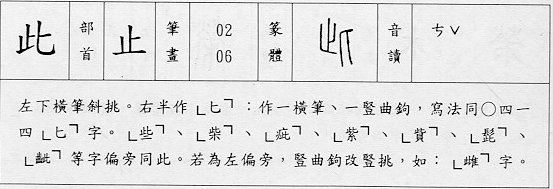 此 部首 止 筆畫 02 06 篆體 音讀 ㄘˇ
左下橫筆斜挑。右半作「匕」：作一橫筆、一豎曲鉤，寫法同○四一
四「匕」字。「些」、「柴」、「疵」、「紫」、「貲」、「髭」、
「齜」等字偏旁同此。若為左偏旁，豎曲鉤改豎挑，如：「雌」字。